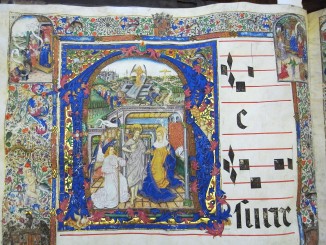 c
surre